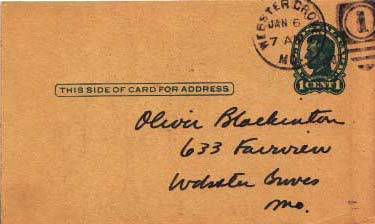 WEBSTER GRO
JAN 6
7 AM
MO.
1
1 CENT 1
THIS SIDE OF CARD FOR ADDRESS
Oliver Blackinton
633 Fairview
Webster Groves
Mo.